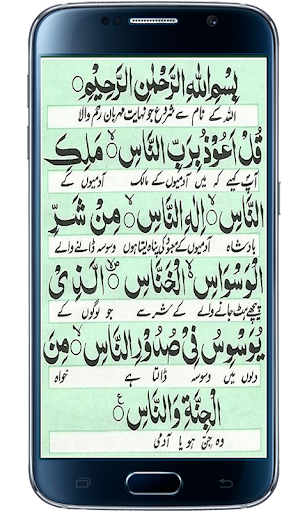 SAMSUNG
بِسْمِ اللهِ الرَّحْمٰنِ الرَّحِيْمِ
اللہ کے نام سے شروع جو نہایت مہربان رحم والا
قُلْ اَعُوْذُ بِرَبِّ النَّاسِ ۙ مَلِكِ
آپ کہیے کہ میں آدمیوں کے مالک آدمیوں کے
النَّاسِ ۙ اِلٰهِ النَّاسِ ۙ مِنْ شَرِّ
بادشاہ آدمیوں کے معبود کی پناہ لیتا ہوں وسوسہ ڈالنے والے
الْوَسْوَاسِ ۙ الْخَنَّاسِ ۙ الَّذِيْ
پیچھے ہٹ جانے والے کے شر سے جو لوگوں کے
يُوَسْوِسُ فِيْ صُدُوْرِ النَّاسِ ۙ مِنَ
دلوں میں وسوسہ ڈالتا ہے خواہ
الْجِنَّةِ وَالنَّاسِ ع
وہ جن ہو یا آدمی